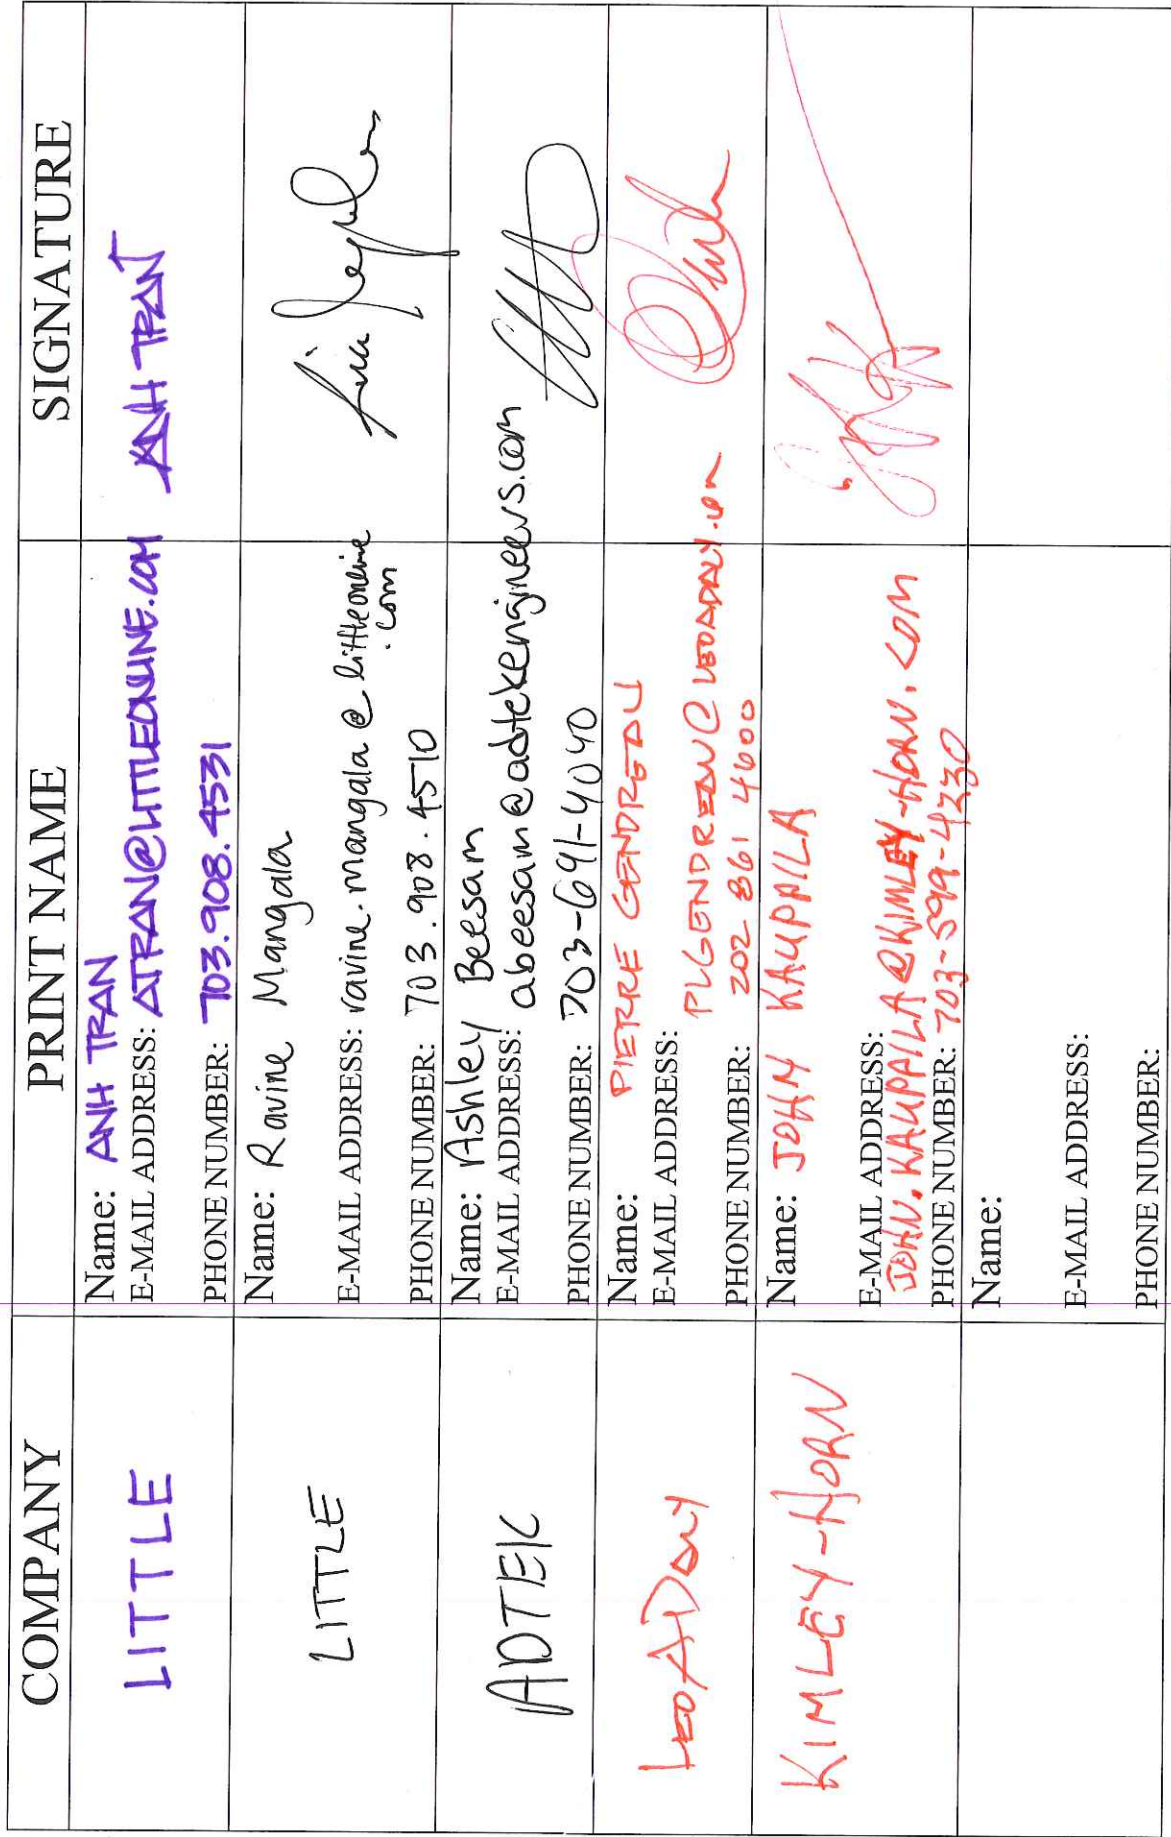 COMPANY PRINT NAME SIGNATURE
LITTLE
Name: ANH TRAN
E-MAIL ADDRESS: ATRAN@LITTLEONLINE.COM
PHONE NUMBER: 703.908.4531
ANH TRAN
LITTLE
Name: Ravine Mangala
E-MAIL ADDRESS: ravine.mangala@littleonline
.com
PHONE NUMBER: 703.908.4510
ADTEK
Name: Ashley Beesam
E-MAIL ADDRESS: abeesam@adtekengineers.com
PHONE NUMBER: 703-691-4040
LEO A DALY
Name: PIERRE GENDREAU
E-MAIL ADDRESS:
PLGENDREAU@LEOADALY.COM
PHONE NUMBER: 202 861 4600
KIMLEY-HORN
Name: JOHN KAUPPILA
E-MAIL ADDRESS:
JOHN.KAUPPILA@KIMLEY-HORN.COM
PHONE NUMBER: 703-599-4230
Name:
E-MAIL ADDRESS:
PHONE NUMBER: